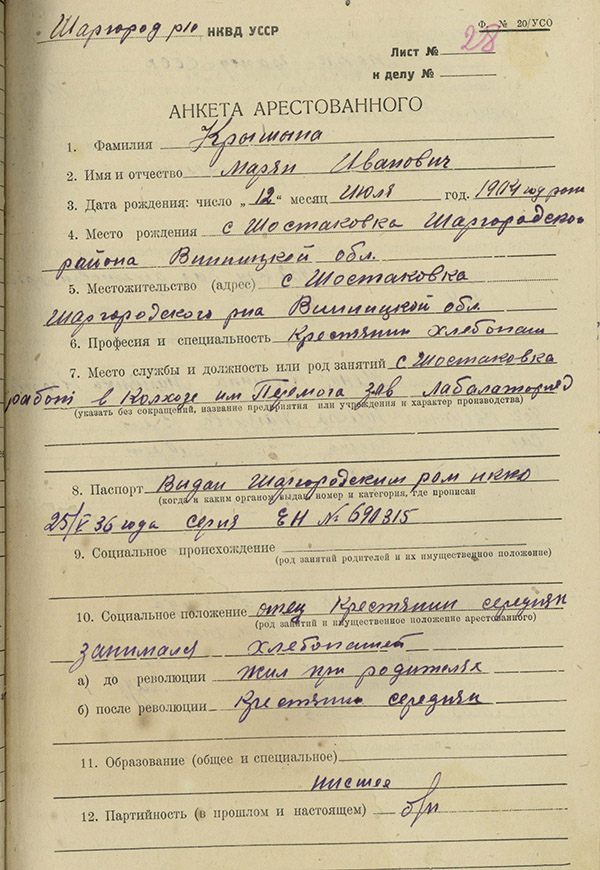 Шаргород р/о НКВД УССР
Ф. № 20/УСО
Лист № 28
к делу №
АНКЕТА АРЕСТОВАННОГО
1. Фамилия Крымына
2. Имя и отчество Марян Иванович
3. Дата рождения: число „12“ месяц Июля год. 1904 году
4. Место рождения с Шостаковка Шаргородско
района Винницкой обл.
5. Местожительство (адрес) с Шостаковка
Шаргородского р-на Винницкой обл.
6. Професия и специальность Крестянин хлебопаш
7. Место службы и должность или род занятий с Шостаковка
работ в Колхозе им Перемога зав Лабалаторией
(указать без сокращений, название предприятия или учреждения и характер производства)
8. Паспорт Видан Шаргородским ром нквд
(когда и каким органом выдан, номер и категория, где прописан
25/V 36 года серия ЕН № 690315
9. Социальное происхождение
(род занятий родителей и их имущественное положение)
10. Социальное положение отец Крестянин середняк
(род занятий и имущественное положение арестованного)
занимался хлебопашей
а) до революции жил при родителях
б) после революции Крестянин середняк
11. Образование (общее и специальное)
нисшее
12. Партийность (в прошлом и настоящем) б/п